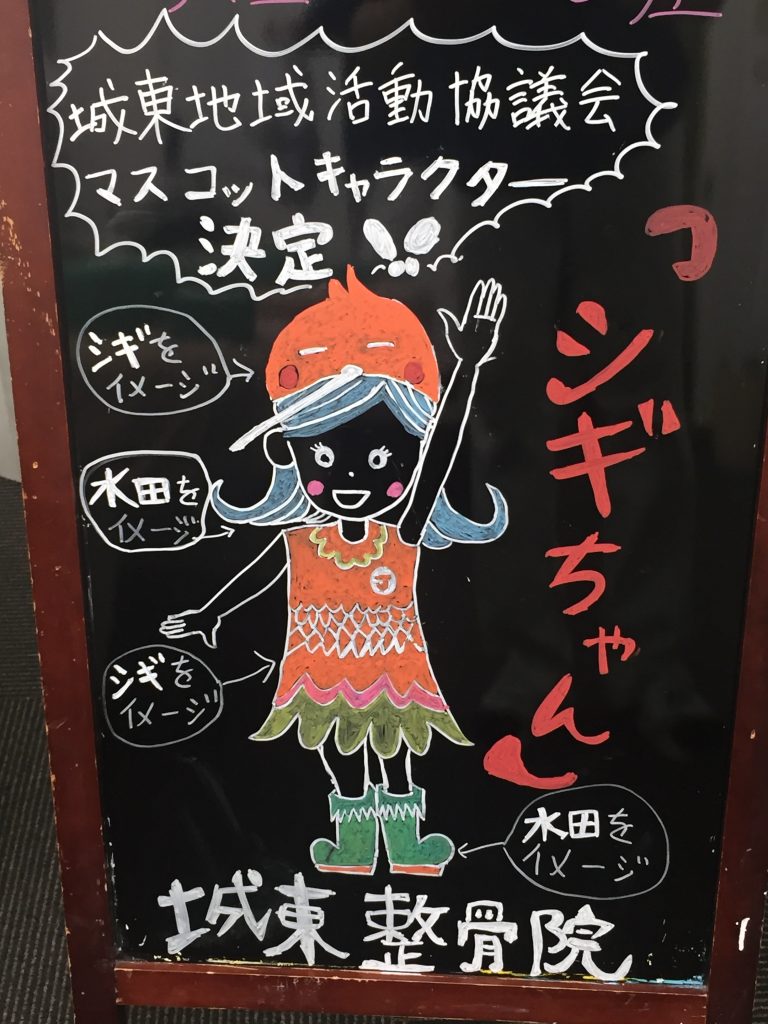 城東地域活動協議会
マスコットキャラクター
決定!!
「シギちゃん」
シギを
イメージ
水田を
イメージ
シギを
イメージ
J
水田を
イメージ
城東整骨院